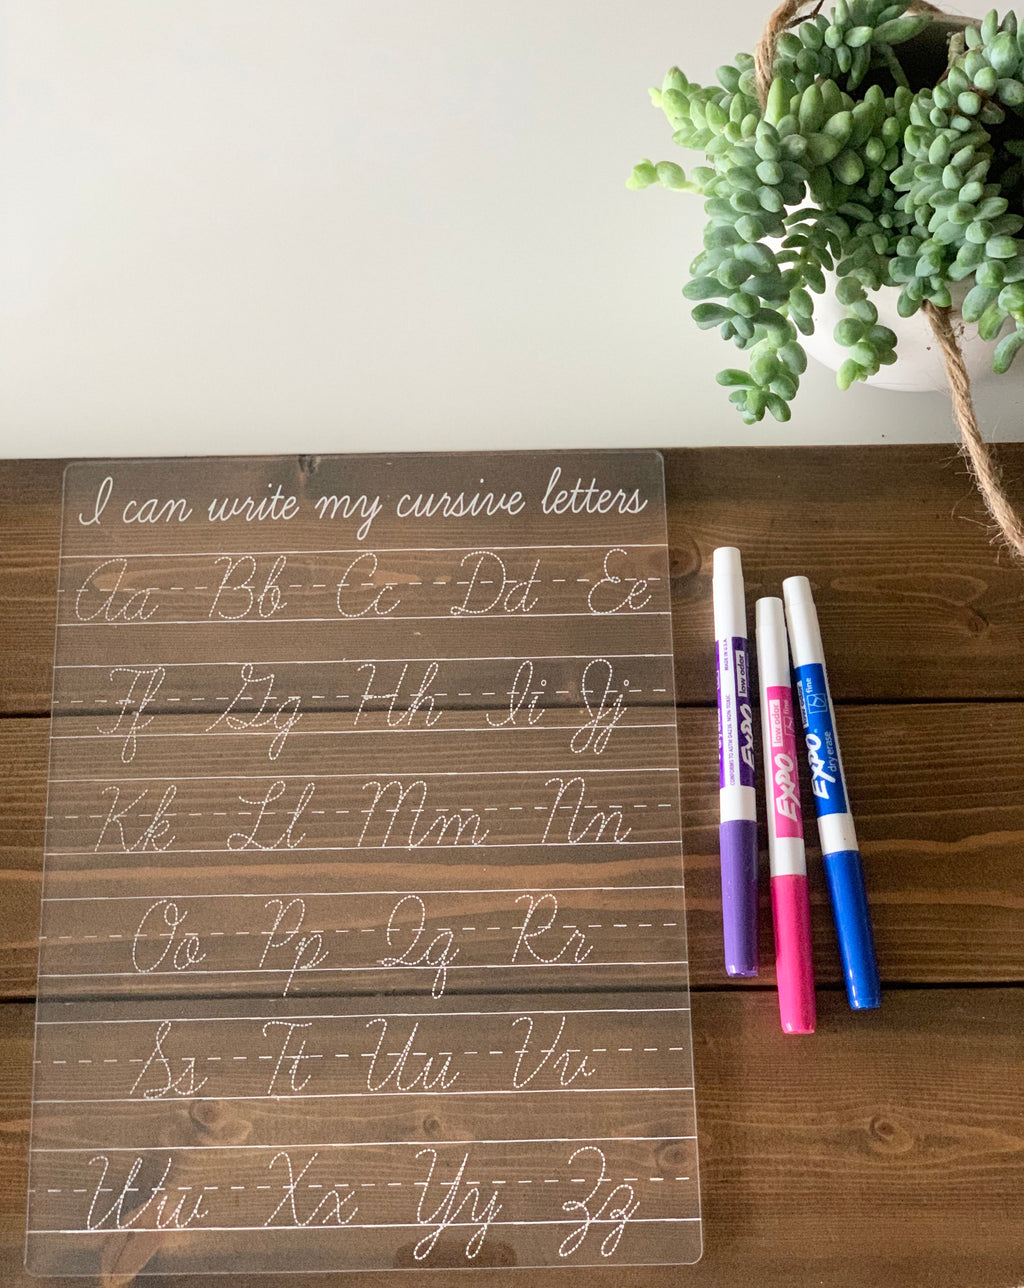 I can write my cursive letters
Aa Bb Cc Dd Ee
Ff Gg Hh Ii Jj
Kk Ll Mm Nn
Oo Pp Qq Rr
Ss Tt Uu Vv
Ww Xx Yy Zz
MADE IN U.S.A.
CONFORMS TO ASTM D-4236. NON-TOXIC
EXPO
low odor
EXPO
low odor
fine
EXPO
dry erase
fine